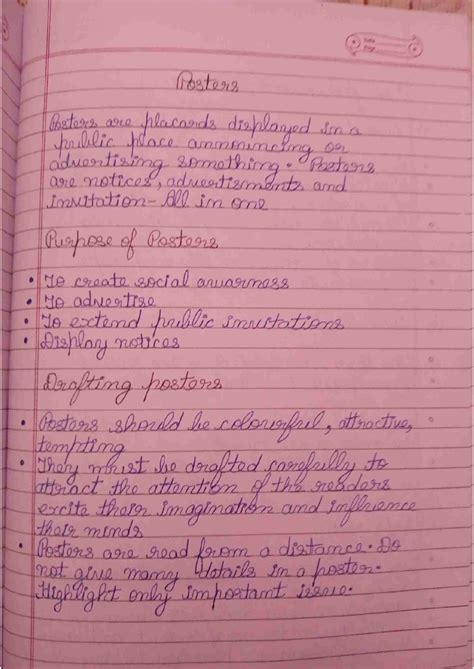 Date
Page
Posters
Posters are placards displayed in a
public place announcing or
advertising something. Posters
are notices, advertisments and
invitation - All in one
Purpose of Posters
• To create social awarness
• To advertise
• To extend public invitations
• Display notices
Drafting posters
• Posters should be colourful, attractive,
tempting
• They must be drafted carefully to
attract the attention of the readers
excite their imagination and influence
their minds
• Posters are read from a distance. Do
not give many details in a poster.
Highlight only important issue.